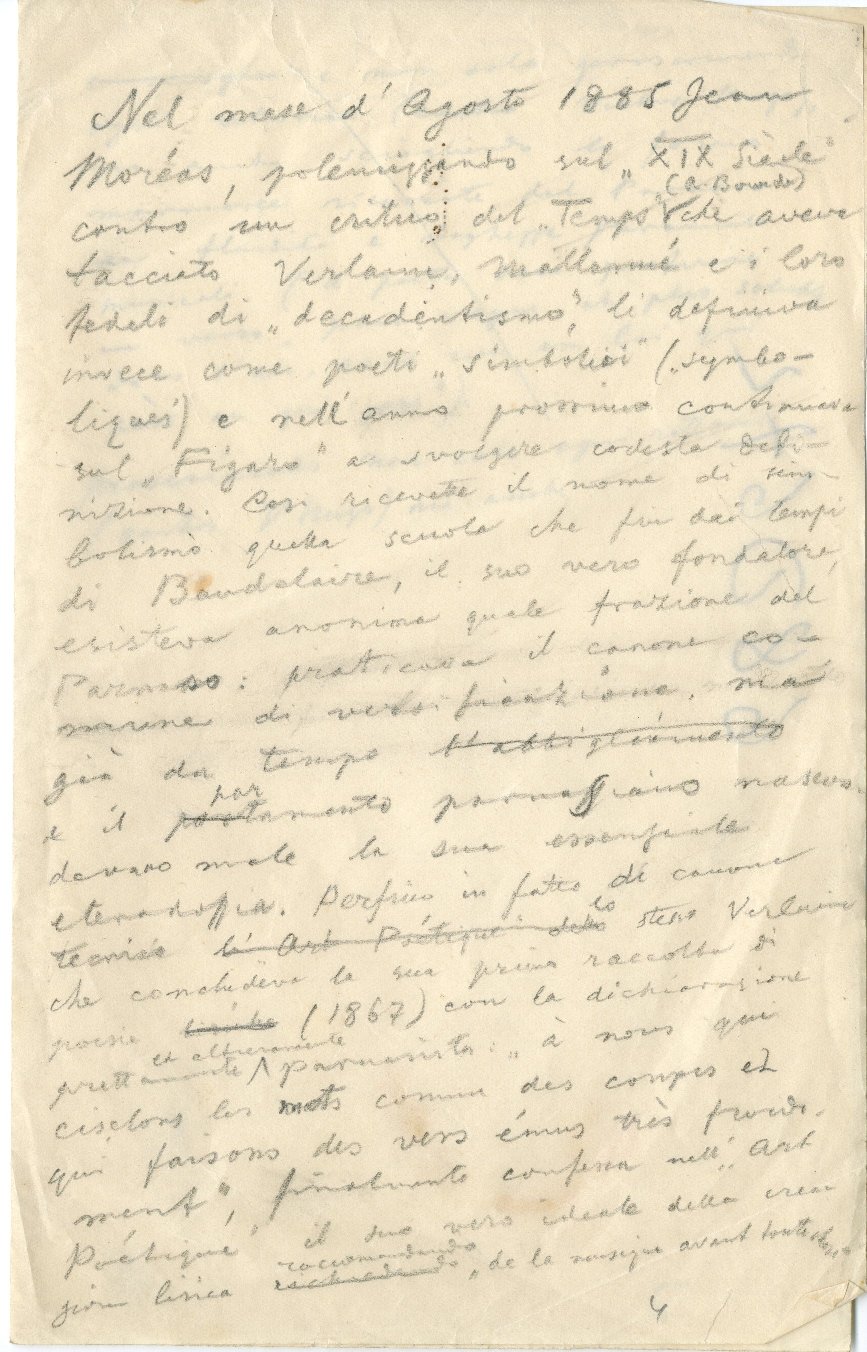 Nel mese d' Agosto 1885 Jean
Moréas, polemizzando sul „XIX Siècle"
(A. Bourde)
contro un critico del „Temps" che aveva
tacciato Verlaine, Mallarmé e i loro
fedeli di „decadentismo", li definiva
invece come poeti „simbolici" („symbo-
liques") e nell' anno prossimo continuava
sul „Figaro" a svolgere codesta defi-
nizione. Così ricevette il nome di sim-
bolismo quella scuola che fin dai tempi
di Baudelaire, il suo vero fondatore,
esisteva anonima quale frazione del
Parnaso: praticava il canone co-
mune di versificazione, ma
già da tempo l'abbigliamento
por
e il portamento parnassiano nascon-
devano male la sua essenziale
eterodossia. Perfino in fatto di canone
tecnico l' Art Poétique dello stesso Verlaine
che conchideva la sua prima raccolta di
poesie (1867) con la dichiarazione
ed alteramente
prettamente parnassista: „à nous qui
ciselons les mots comme des coupes et
qui faisons des vers émus très froide-
ment", finalmente confessa nell' „Art
Poétique" il suo vero ideale della crea-
raccomandando
zione lirica „de la musique avant toute chose"
4